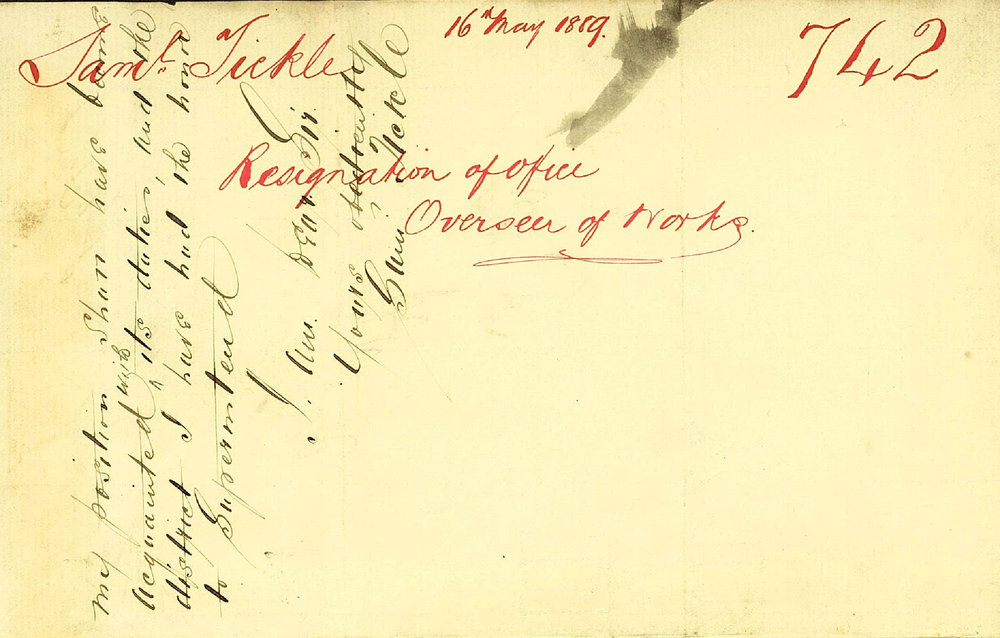 Saml. Tickle
16th May 1889.
742
Resignation of Office
Overseer of Works.
my position shall have became
acquainted with its duties, and the
district I have had the honor
to Superintend
I am Dear Sir
Yours obediently
Saml. Tickle